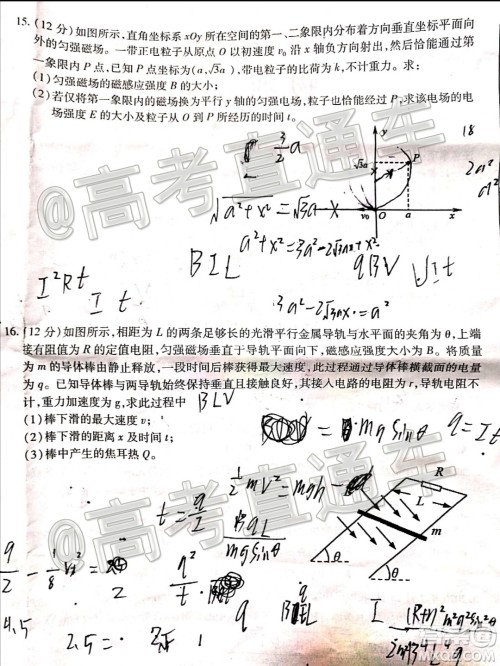 15. (12 分) 如图所示，直角坐标系 xOy 所在空间的第一、二象限内分布着方向垂直坐标平面向
外的匀强磁场。一带正电粒子从原点 O 以初速度 v₀ 沿 x 轴负方向射出，然后恰能通过第
一象限内 P 点，已知 P 点坐标为 (a, √3a)，带电粒子的比荷为 k，不计重力。求：
(1) 匀强磁场的磁感应强度 B 的大小；
(2) 若仅将第一象限内的磁场换为平行 y 轴的匀强电场，粒子也恰能经过 P，求该电场的电
场强度 E 的大小及粒子从 O 到 P 所经历的时间 t。
3/2 a
y
√3a
P
18
v₀ O a x
2a²
√a²+x² = √3a-x
a²+x² = 3a²-2√3ax+x²
BIL
qBV
UIt
I²Rt
It
3a²-2√3ax = a²
@高考直通车
16. (12 分) 如图所示，相距为 L 的两条足够长的光滑平行金属导轨与水平面的夹角为 θ，上端
接有阻值为 R 的定值电阻，匀强磁场垂直于导轨平面向下，磁感应强度大小为 B。将质量
为 m 的导体棒由静止释放，一段时间后棒获得最大速度，此过程通过导体棒横截面的电量
为 q。已知导体棒与两导轨始终保持垂直且接触良好，其接入电路的电阻为 r，导轨电阻不
计，重力加速度为 g，求此过程中
BLV
(1) 棒下滑的最大速度 v；
(2) 棒下滑的距离 x 及时间 t；
(3) 棒中产生的焦耳热 Q。
mg sinθ
q = It
1/2 mV² = mgh -
t = q/I
BqL
mg sinθ
R
L
m
θ
θ
@高考直通车
9/2
q²/t
q
I
4.5
2.5 =
答案圈
MXQE.COM